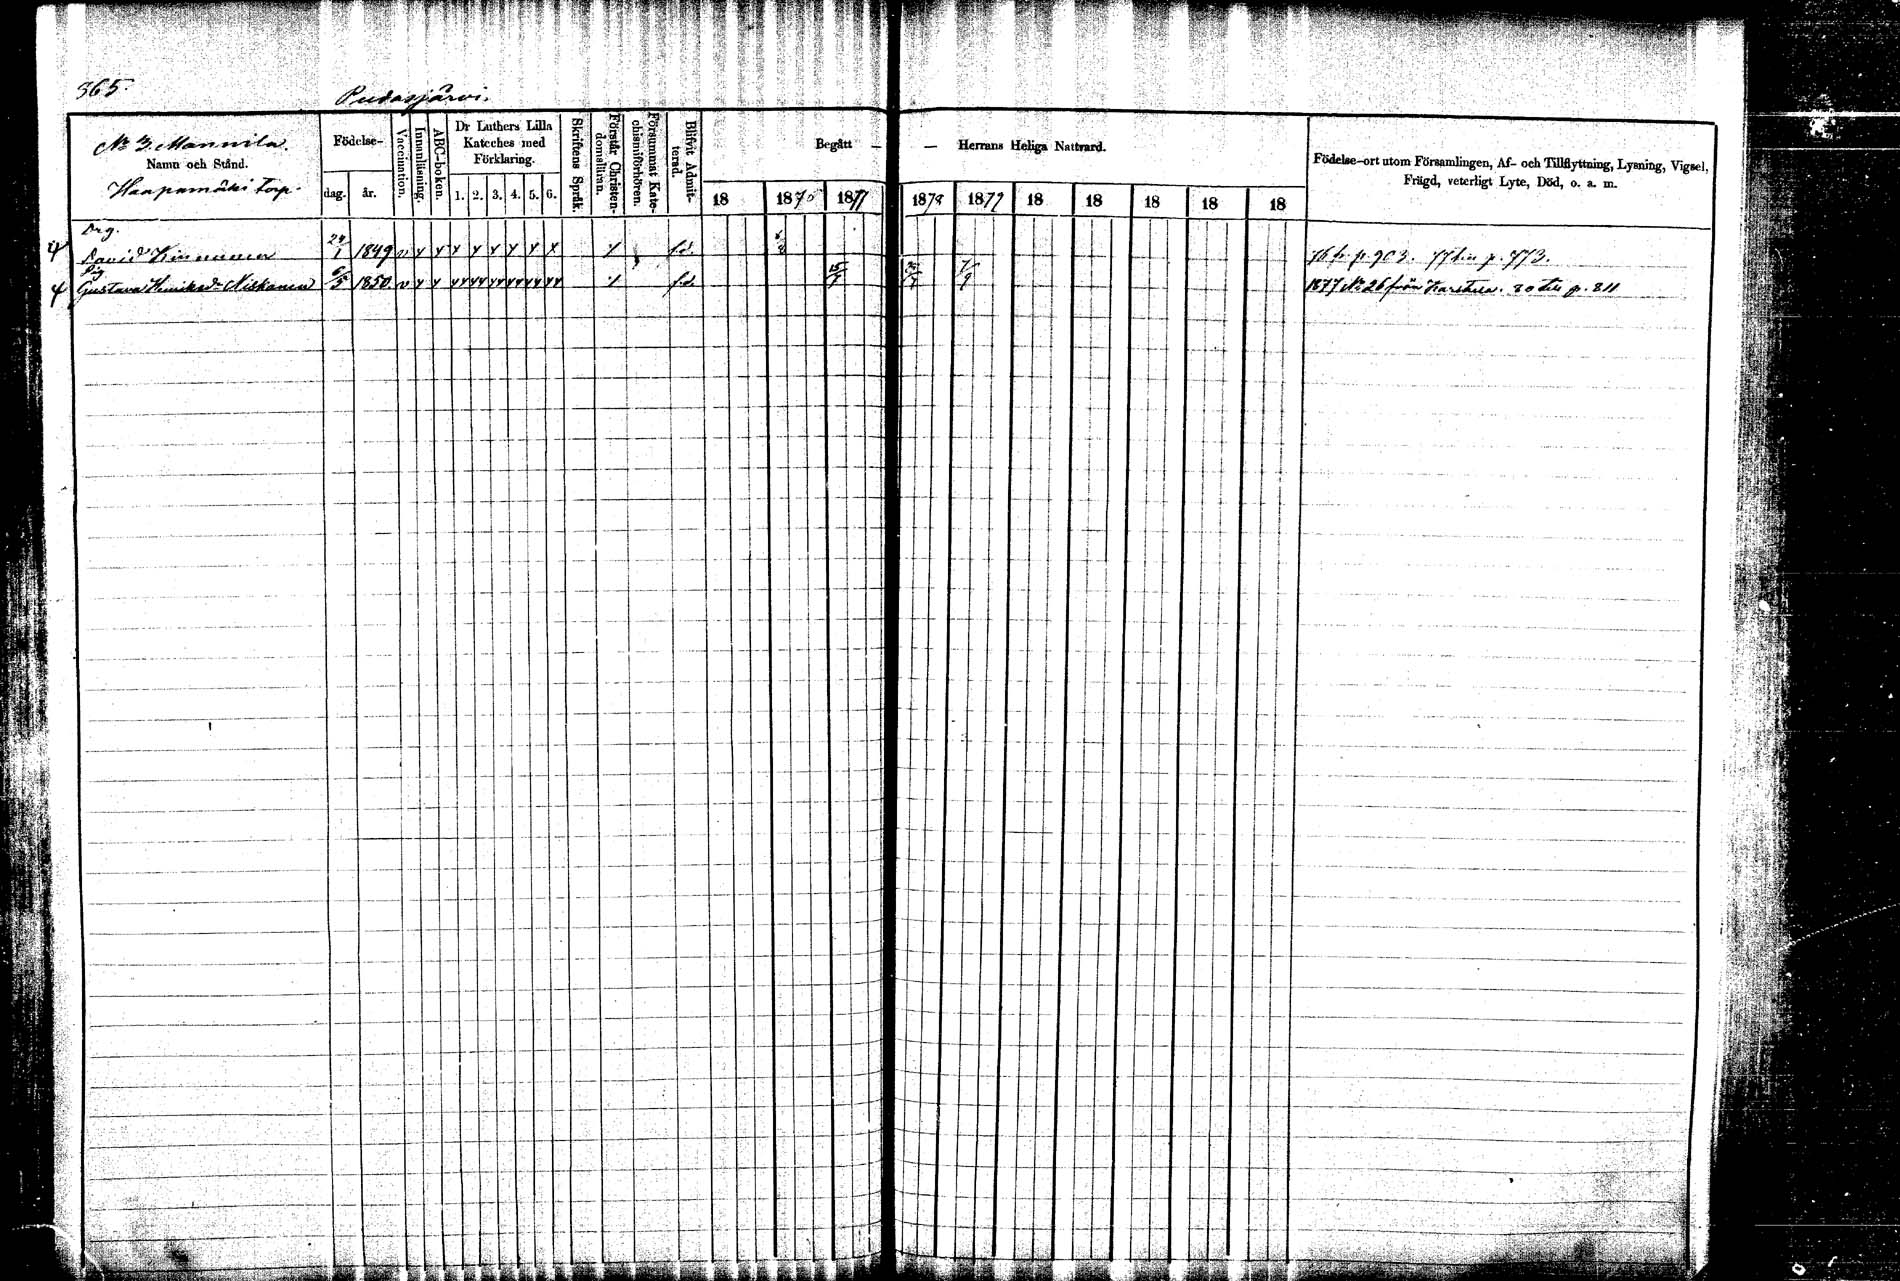 365.
Pudasjärvi.
No 3. Mannila.
Namn och Stånd.
Haapamäki Torp.
Födelse-
dag. år.
Vaccination.
Innanläsning.
ABC-boken.
Dr Luthers Lilla
Kateches med
Förklaring.
1. 2. 3. 4. 5. 6.
Skriftens Språk.
Förstår Christen-
domsläran.
Försummat Kate-
chismiförhören.
Blifvit Admit-
terad.
Begått — — Herrans Heliga Nattvard.
18 1876 1877 1878 1879 18 18 18 18 18
Födelse-ort utom Församlingen, Af- och Tillflyttning, Lysning, Vigsel,
Frägd, veterligt Lyte, Död, o. a. m.
Drg.
David Kinnunen 24/1 1849 v x x x x x x x x 76 fr. p. 903. 77 till p. 773.
Pig.
Gustava Henriksdr Niskanen 6/5 1850 v x x 15/7 7/9 1877 No 26 från Karstula. 80 till p. 811